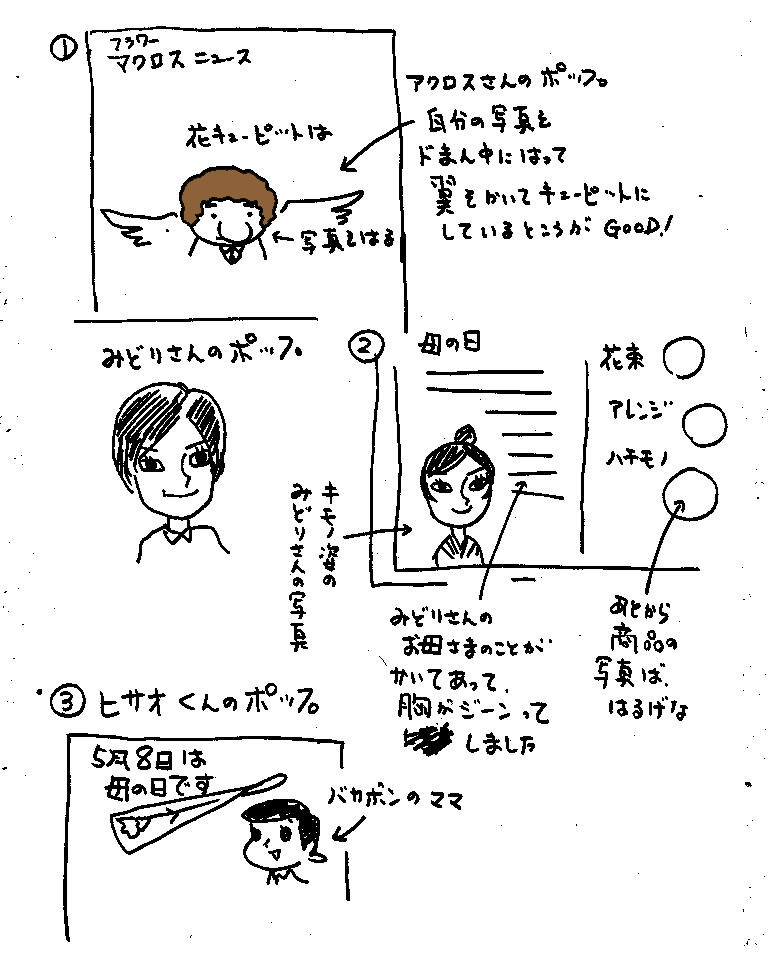 ①
フラワー
マクロス ニュース
花キューピットは
←写真をはる
アクロスさんの ポップ。
自分の写真を
ドまん中にはって
翼をかいて キューピットに
しているところが GOOD!
みどりさんのポップ。
②
母の日
花束
アレンジ
ハチモノ
キモノ姿の
みどりさんの写真
みどりさんの
お母さまのことが
かいてあって、
胸がジーンって
しました
あとから
商品の
写真ば、
はるげな
③ ヒサオくんのポップ。
5月8日は
母の日です
バカボンのママ